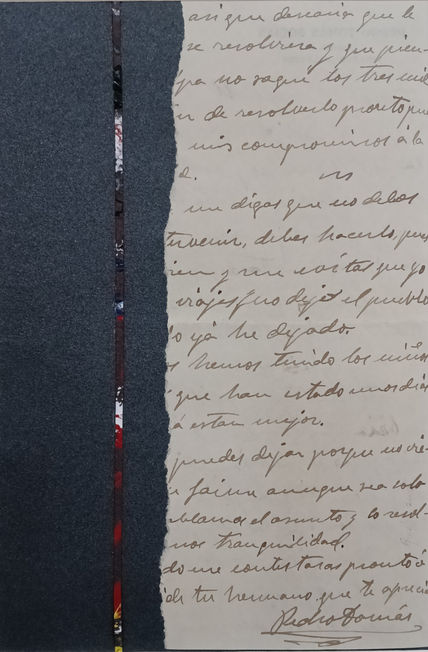 asi que desearia que te
se resolviera y que pien-
no saque los tres mil
de resolverlo pronto pue
mis compromisos á la
me digas que no debes
tervenir, debes hacerlo, pues
y me evitas que yo
viajes y no deje el pueblo
lo ya he dejado.
hemos tenido los niños
que han estado unos dias
á estan mejor.
puedes dejar porque no vie-
aunque sea solo
blamos el asunto y lo resol-
mos tranquilidad.
do me contestaras pronto á
de tu hermano que te aprecia
Pedro Tomás